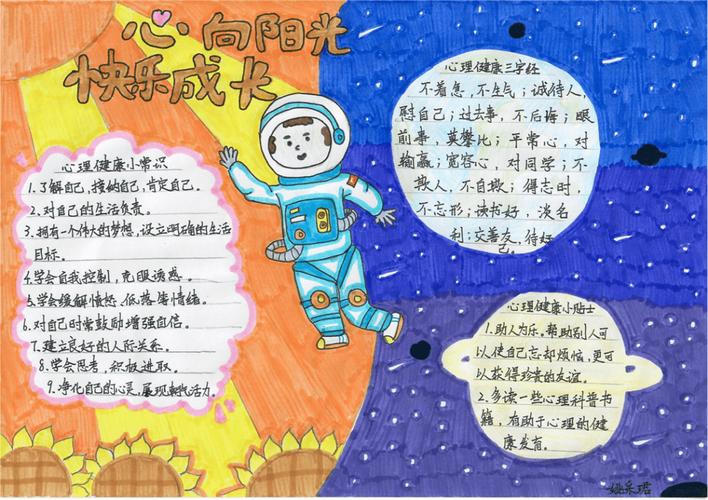 心·向阳光
快乐成长
心理健康小常识
1.了解自己,接纳自己,肯定自己。
2.对自己的生活负责。
3.拥有一个伟大的梦想,设立明确的生活
目标。
4.学会自我控制,克服诱惑。
5.学会缓解愤怒、低落等情绪。
6.对自己时常鼓励增强自信。
7.建立良好的人际关系。
8.学会思考,积极进取。
9.净化自己的心灵,展现朝气活力。
心理健康三字经
不着急,不生气;诚待人,
慰自己;过去事,不后悔;眼
前事,莫攀比;平常心,对
输赢;宽容心,对同学;不
欺人,不自欺;得志时,
不忘形;读书好,淡名
利;交善友,待好
己。
心理健康小贴士
1.助人为乐。帮助别人可
以使自己忘却烦恼,更可
以获得珍贵的友谊。
2.多读一些心理科普书
籍,有助于心理的健
康发育。
姚采珺